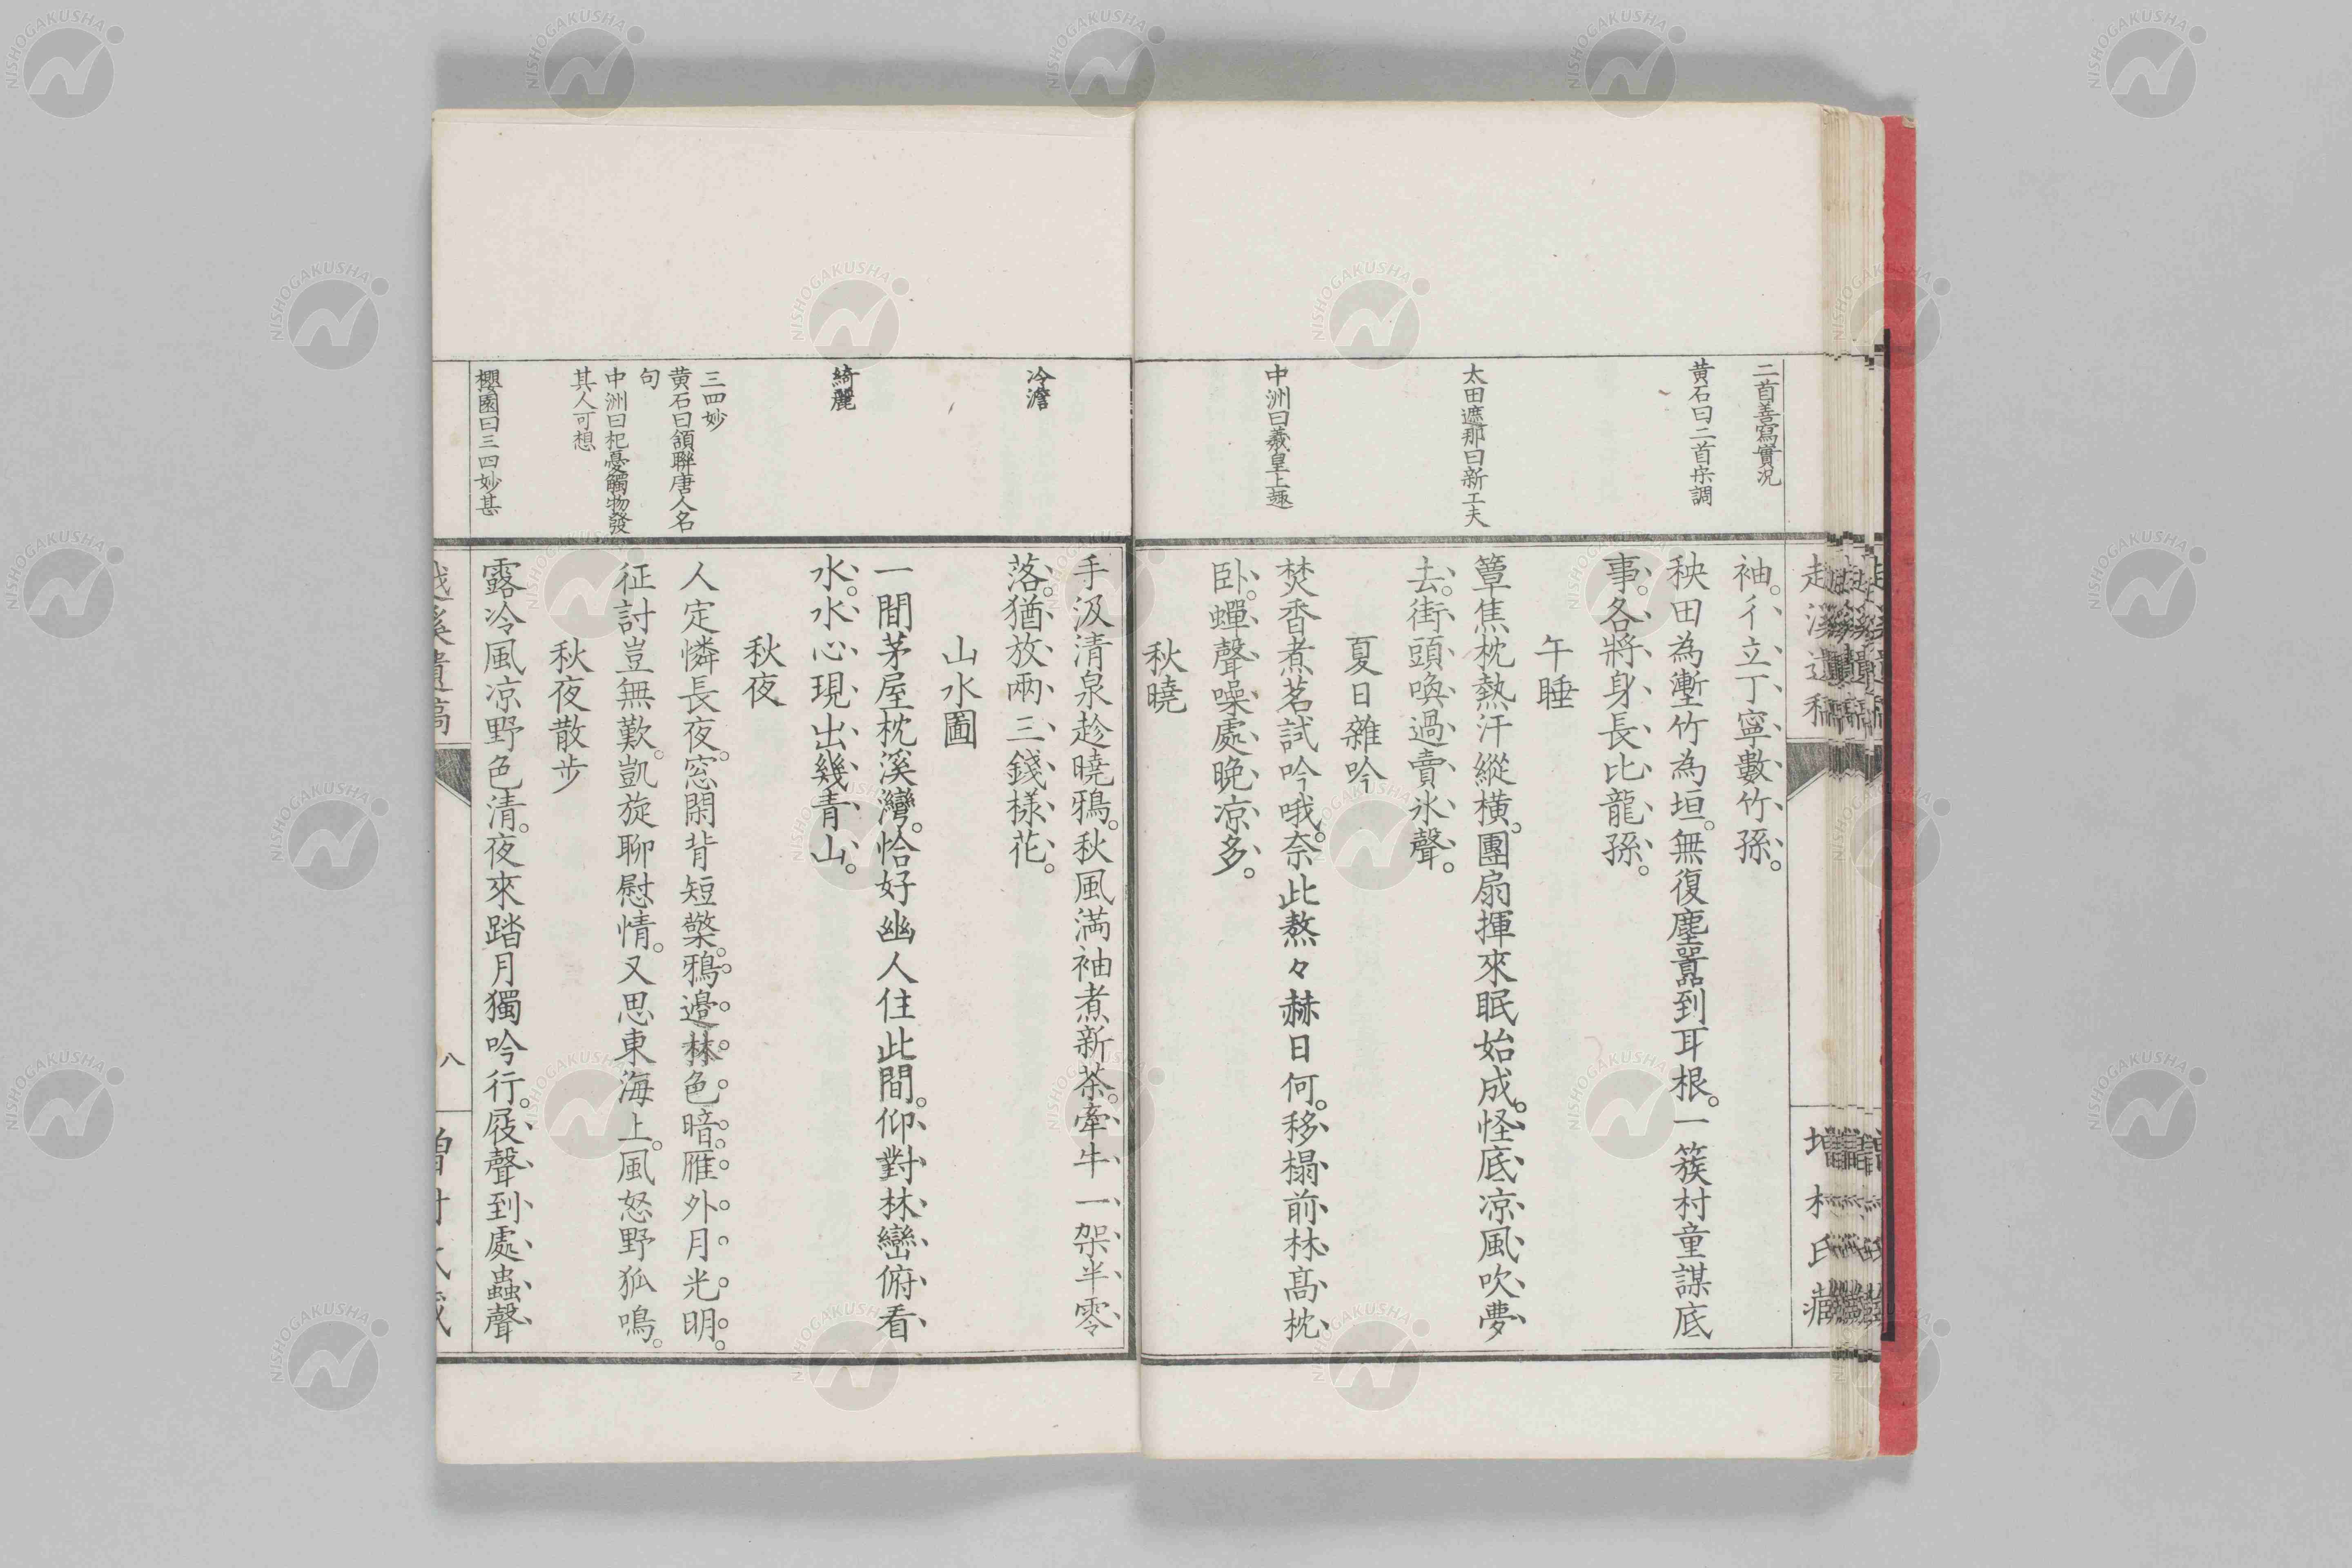 二首善寫實況
黄石曰二首宋調
太田遮那曰新工夫
中洲曰羲皇上趣
袖。彳立丁寧數竹孫。
秧田為塹竹為垣。無復塵囂到耳根。一簇村童謀底
事。各將身長比龍孫。
午睡
簟焦枕熱汗縱橫。團扇揮來眠始成。怪底凉風吹夢
去。街頭喚過賣氷聲。
夏日雜吟
焚香煮茗試吟哦。奈此熬々赫日何。移榻前林高枕
卧。蟬聲噪處晩凉多。
秋曉
冷澹
綺麗
三四妙
黄石曰頷聯唐人名
句
中洲曰杞憂觸物發
其人可想
櫻園曰三四妙甚
手汲清泉趁曉鴉。秋風満袖煮新茶。牽牛一架半零
落。猶放兩三錢樣花。
山水圖
一間茅屋枕溪灣。恰好幽人住此間。仰對林巒俯看
水。水心現出幾青山。
秋夜
人定憐長夜。窓閑背短檠。鴉邉林色暗。雁外月光明。
征討豈無歎。凱旋聊慰情。又思東海上。風怒野狐鳴。
秋夜散步
露冷風凉野色清。夜來踏月獨吟行。屐聲到處蟲聲
八
NISHOGAKUSHA